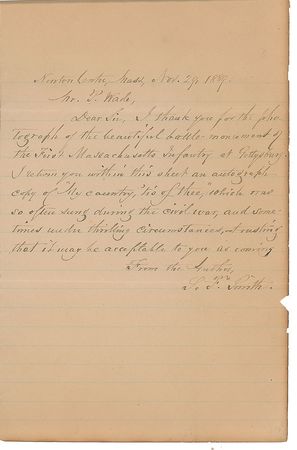 Newton Centre, Mass, Nov. 29, 1889.
Mr. P. Wade,
Dear Sir, I thank you for the pho-
tograph of the beautiful battle-monument of
the First Massachusetts Infantry, at Gettysburg.
I return you within this sheet an autograph
copy of "My country, 'tis of thee," which was
so often sung during the civil war, and some-
times under thrilling circumstances, trusting
that it may be acceptable to you as coming
From the Author,
S. F. Smith.